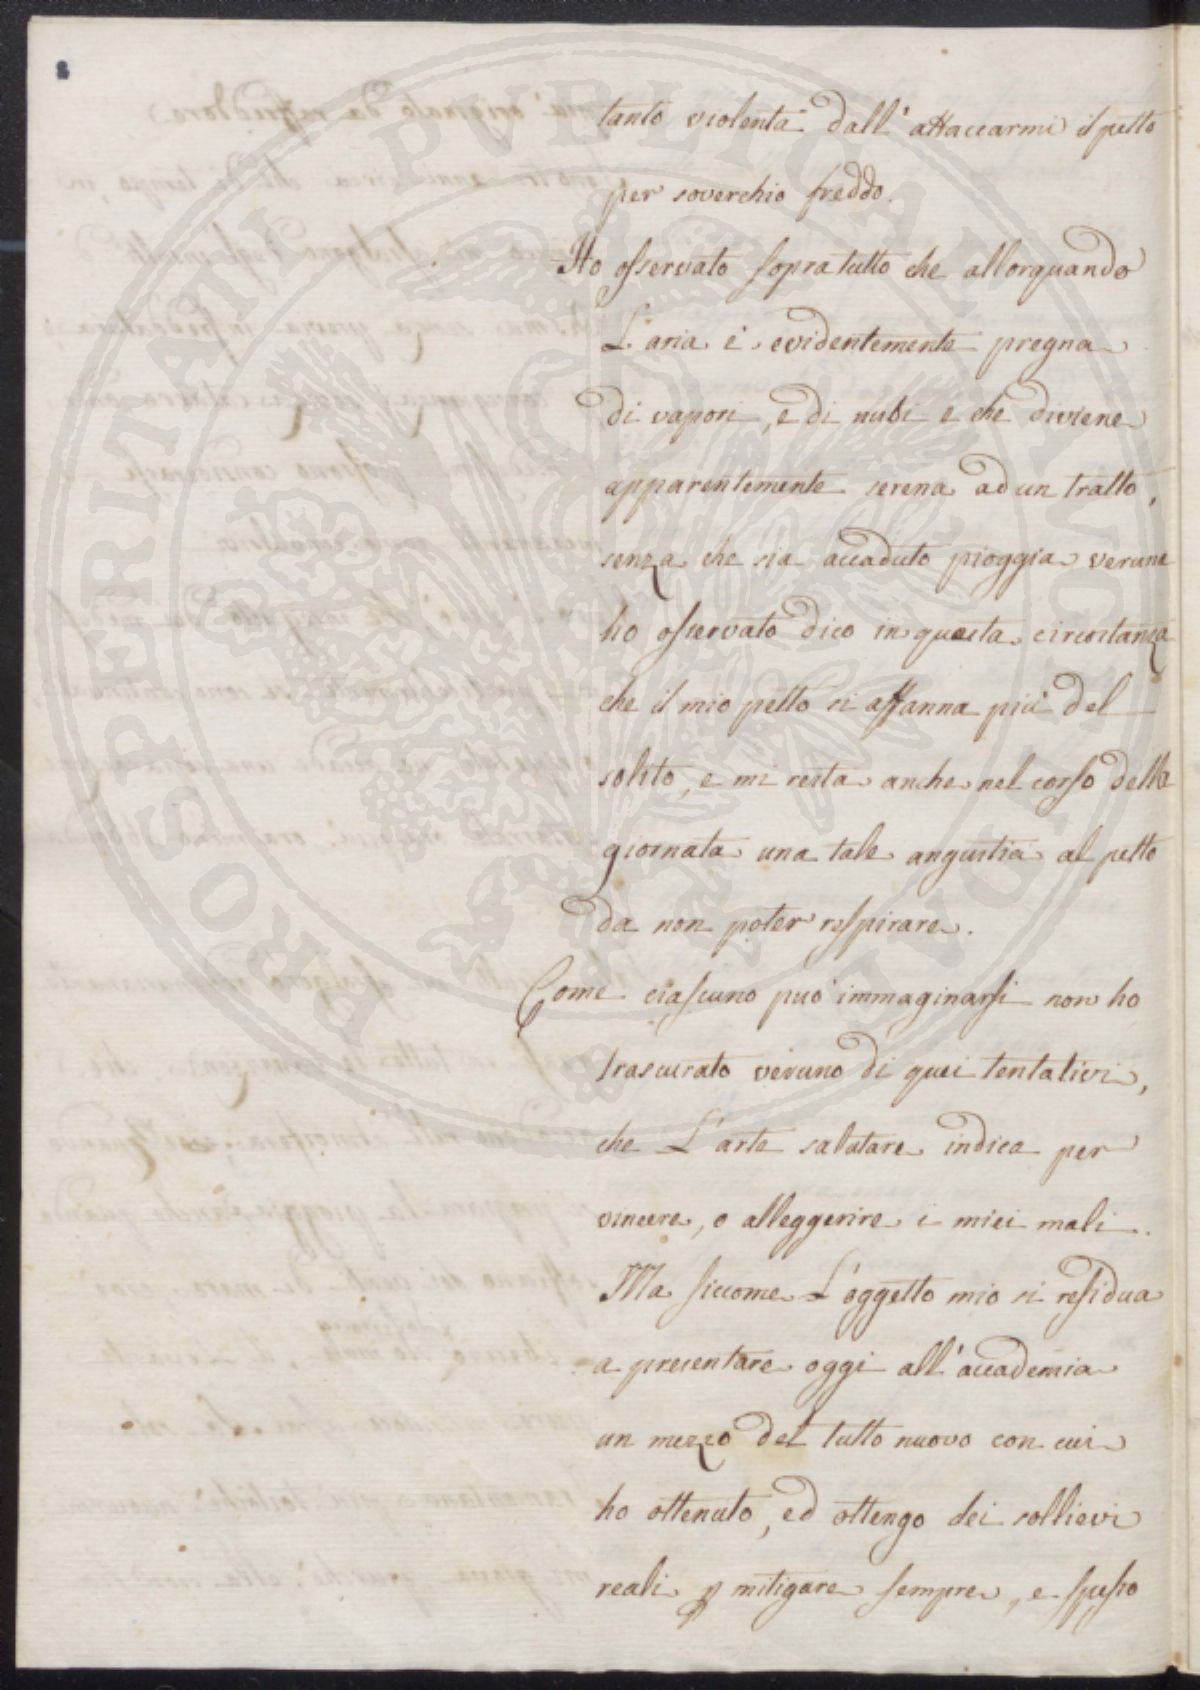 tanto violenta dall' attaccarmi il petto
per soverchio freddo.
Ho osservato sopratutto che allorquando
L'aria è evidentemente pregna
di vapori, e di nubi e che diviene
apparentemente serena ad un tratto,
senza che sia accaduto pioggia veruna
ho osservato dico in questa circostanza
che il mio petto si affanna più del
solito, e mi resta anche nel corso della
giornata una tale angustia al petto
da non poter respirare.
Come ciascuno può immaginarsi non ho
trascurato veruno di quei tentativi,
che L'arte salutare indica per
vincere, o alleggerire i miei mali.
Ma siccome L'oggetto mio si residua
a presentare oggi all'accademia
un mezzo del tutto nuovo con cui
ho ottenuto, ed ottengo dei sollievi
reali p mitigare sempre, e spesso
PROSPERITATI PVBLICAE AVGENDAE